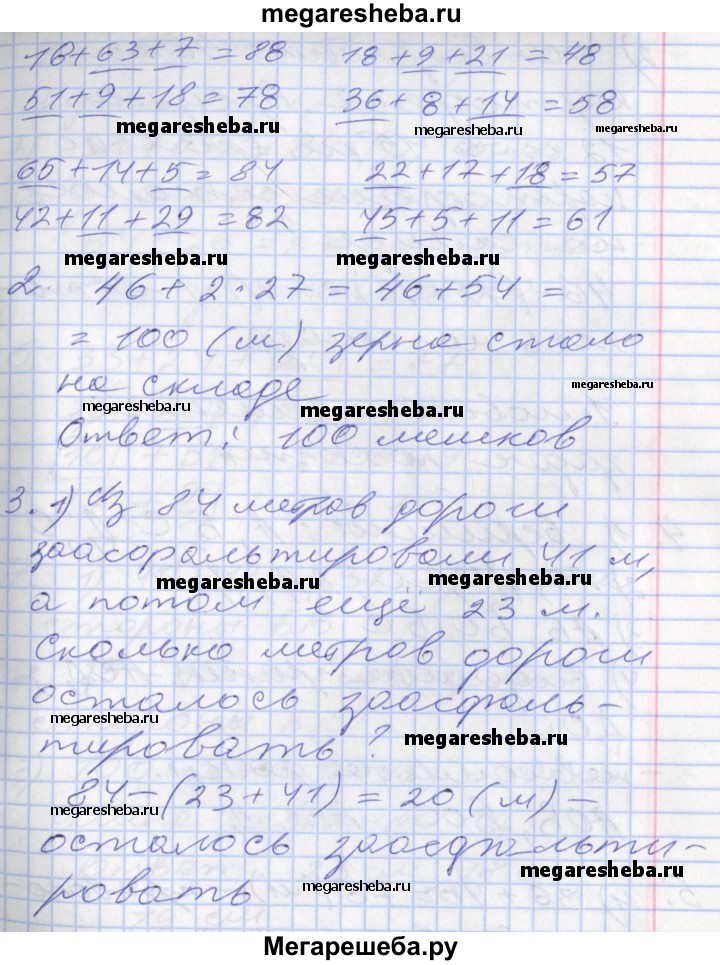 megaresheba.ru
18+63+7=88 18+9+21=48
51+9+18=78 36+8+14=58
megaresheba.ru megaresheba.ru megaresheba.ru
65+14+5=84 22+17+18=57
42+11+29=82 45+5+11=61
megaresheba.ru megaresheba.ru
2. 46+2·27=46+54=
=100 (м) зерна стало
на складе megaresheba.ru
megaresheba.ru megaresheba.ru
Ответ: 100 мешков
3. 1) Из 84 метров дороги
заасфальтировали 41 м,
megaresheba.ru megaresheba.ru
а потом ещё 23 м.
Сколько метров дороги
осталось заасфаль-
megaresheba.ru
тировать? megaresheba.ru
84-(23+41)=20 (м) -
megaresheba.ru
осталось заасфальти-
megaresheba.ru
ровать megaresheba.ru
Мегарешеба.ру